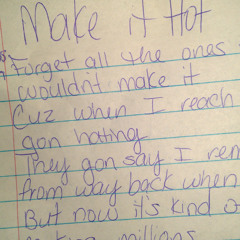 Make it Hot
Forget all the ones
wouldn't make it
Cuz when I reach
gon hating
They gon say I rem
from way back when
But now it's kind o
millions